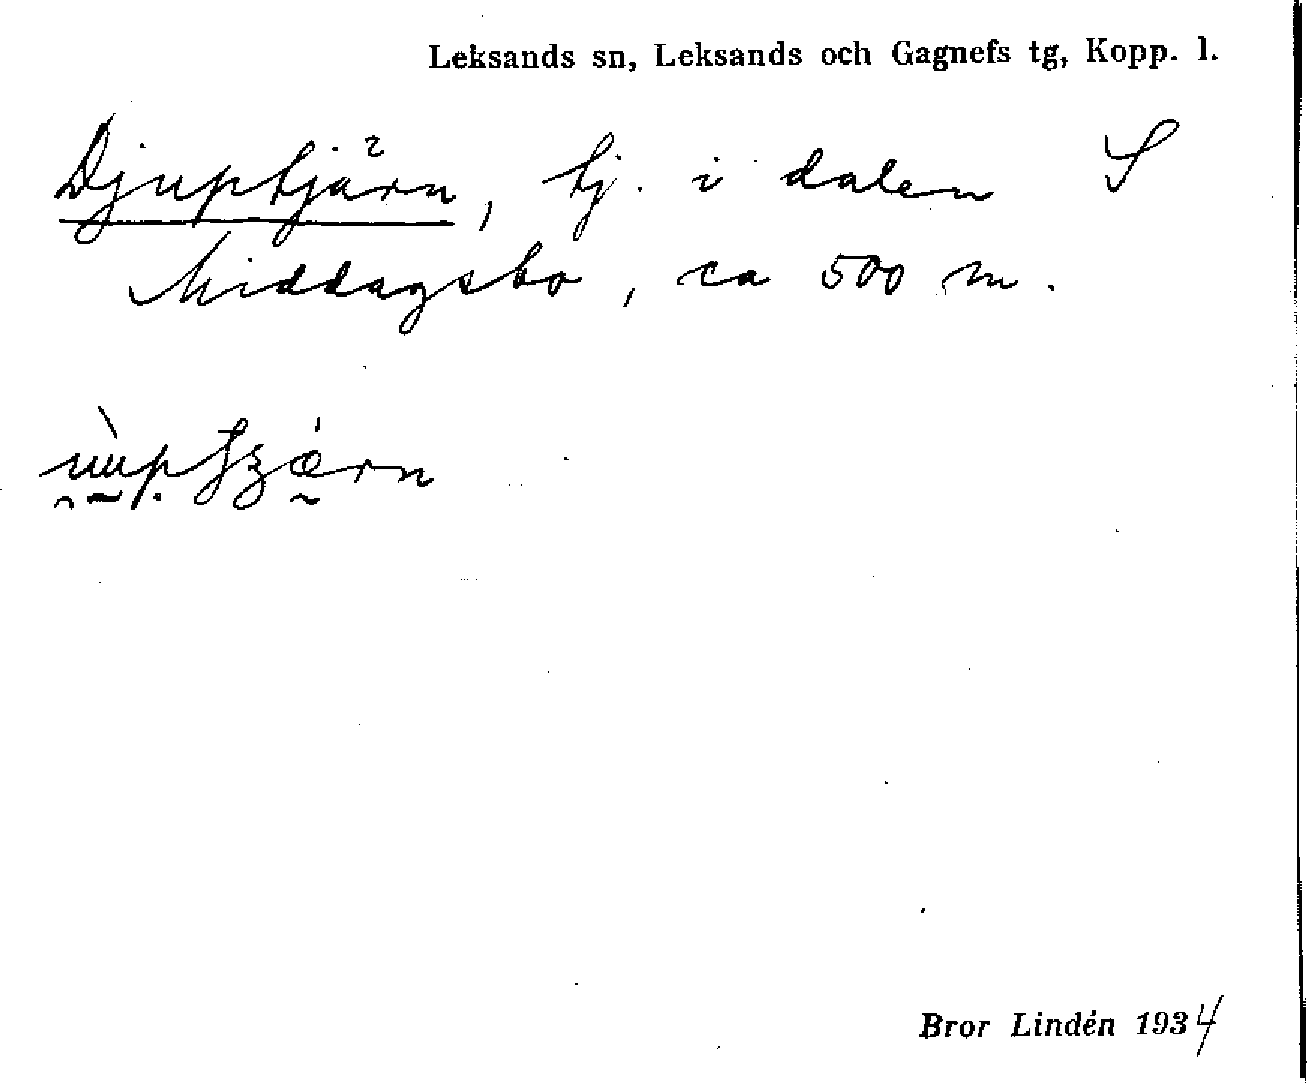 Leksands sn, Leksands och Gagnefs tg, Kopp. l.
Djuptjärn, tj. i dalen S
Middagsbo, ca 500 m.
Bror Lindén 1934